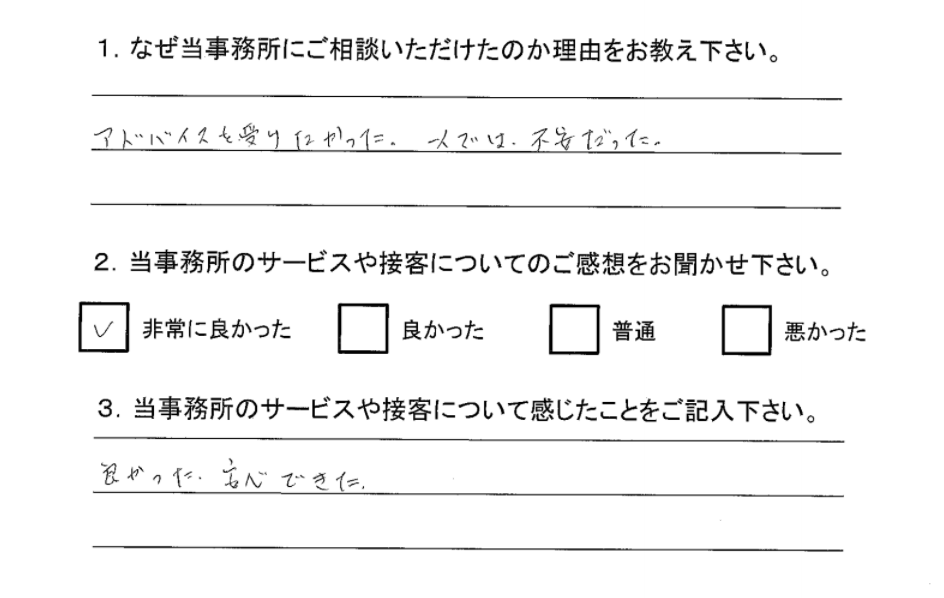 1. なぜ当事務所にご相談いただけたのか理由をお教え下さい。
アドバイスを受けたかった。一人では、不安だった。
2. 当事務所のサービスや接客についてのご感想をお聞かせ下さい。
✓ 非常に良かった 良かった 普通 悪かった
3. 当事務所のサービスや接客について感じたことをご記入下さい。
良かった。安心できた。